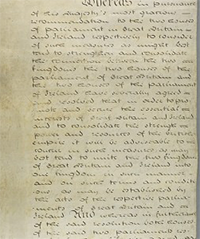 Whereas in pursuance
of His Majesty's most gracious
recommendation to the two Houses
of parliament in Great Britain
and Ireland respectively to consider
of such measures as might best
tend to strengthen and consolidate
the connection between the two
kingdoms the two houses of the
parliament of Great Britain and
the two houses of the parliament
of Ireland have severally agreed
and resolved that in order to pro
mote and secure the essential
interests of great Britain and Ireland
and to consolidate the strength
power and resources of the British
empire it will be adviseable to
concur in such measures as may
best tend to unite the two kingdoms
of Great Britain and Ireland into
one kingdom in such manner
and on such terms and conditi
ons as may be established by
the acts of the respective parlia
ments of great Britain and
Ireland And whereas in furtherance
of the said resolution both houses
of the said two parliaments